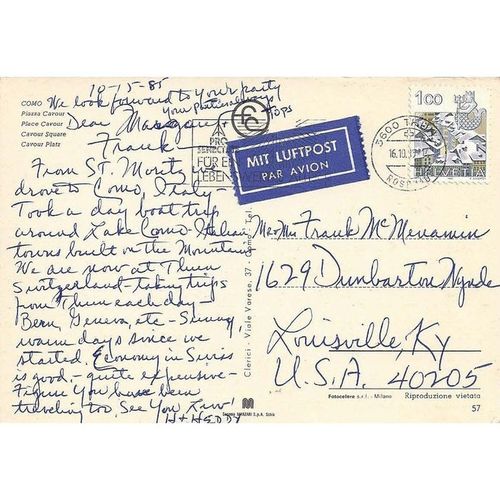 10-15-85
We look forward to your party
your
Hops
COMO
Piazza Cavour
Place Cavour
Cavour Square
Cavour Platz
Dear
Frank
From ST. Moritz
drove to Como, Italy-
Took a day boat trip
around Lake Como-Italian
towns built on the Mountain
We are now at Thun
Switzerland-taking trips
from Thun each day-
Bern, Geneva, etc-Sunny,
warm days since we
started. Economy in Swiss
is good,-quite expensive-
Figure You have been
traveling too. See You
H+HEDDY
PRO
FÜR
LEBEN
MIT LUFTPOST
PAR AVION
3600 THUN
16.10.85
100
HELVETIA
Mr. Mrs Frank McMenamin
1629 Dunbarton Wynde
Louisville, Ky
U.S.A. 40205
Clerici - Viale Varese, 37 - Como - Tel.
Fotocelere s.r.l. - Milano
Riproduzione vietata
57